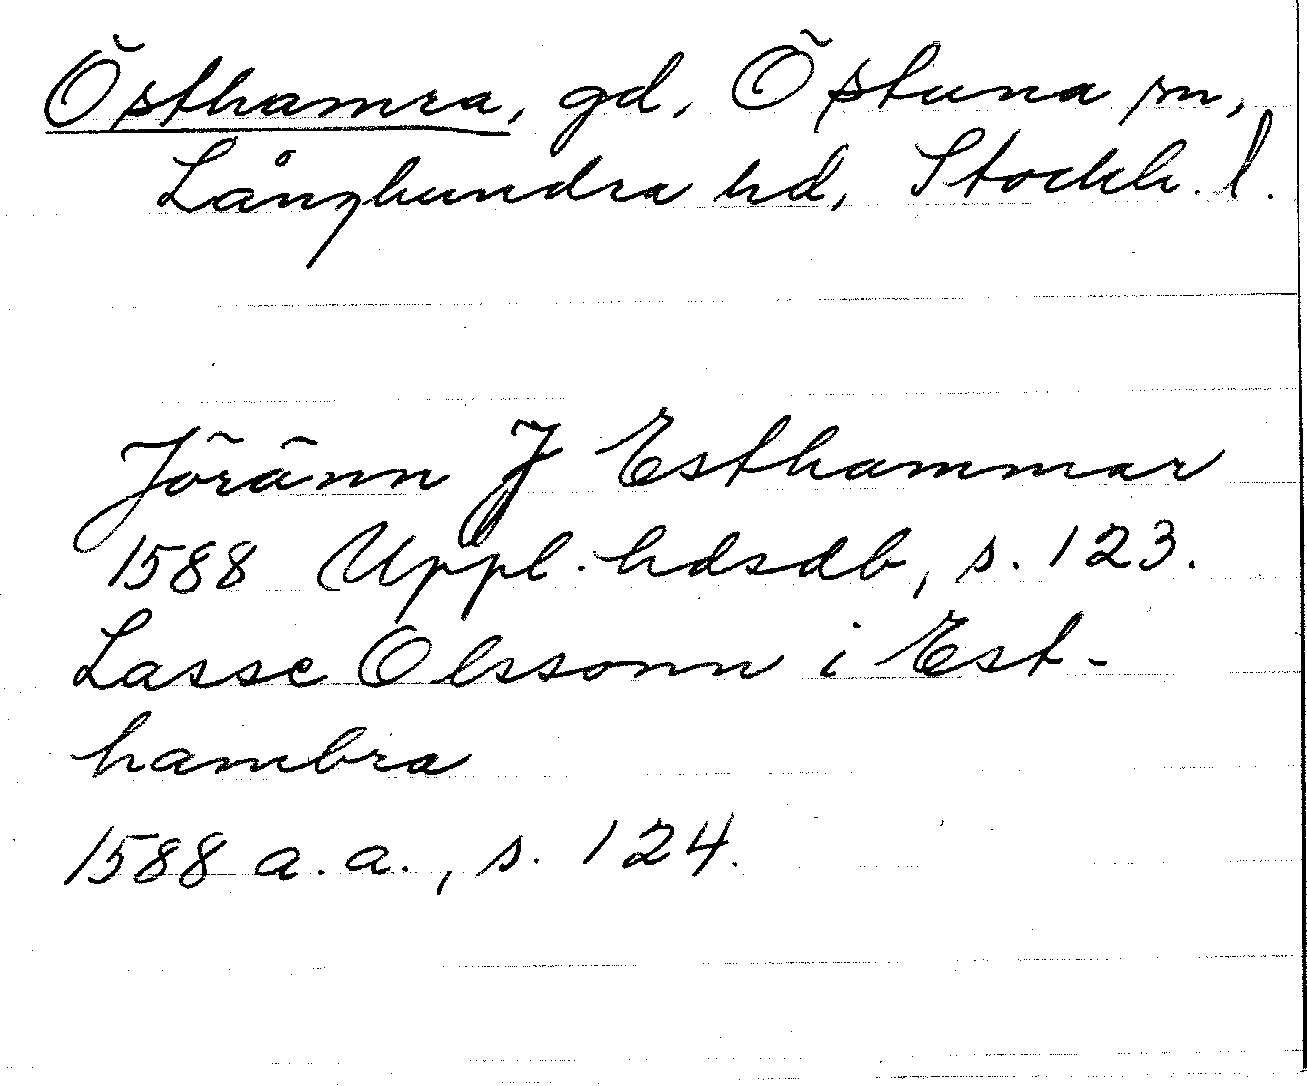 Östhamra, gd, Östuna sn,
Långhundra hd, Stockh. l.
Jöränn J Esthammar
1588 Uppl. hdsdb, s. 123.
Lasse Olssonn i Est-
hambra
1588 a.a., s. 124.